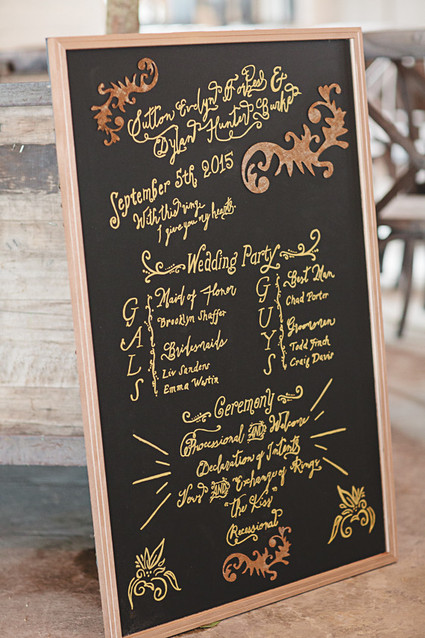 Sutton Evelyn Forbes &
Dylan Hunter Burke
September 5th, 2015
With this ring
I give you my heart.
Wedding Party
GALS
Maid of Honor
Brooklyn Shaffer
Bridesmaids
Liv Sanders
Emma Martin
GUYS
Best Man
Chad Porter
Groomsmen
Todd Finch
Craig Davis
Ceremony
Processional AND Welcome
Declaration of Intents
Vows AND Exchange of Rings
"The Kiss"
Recessional